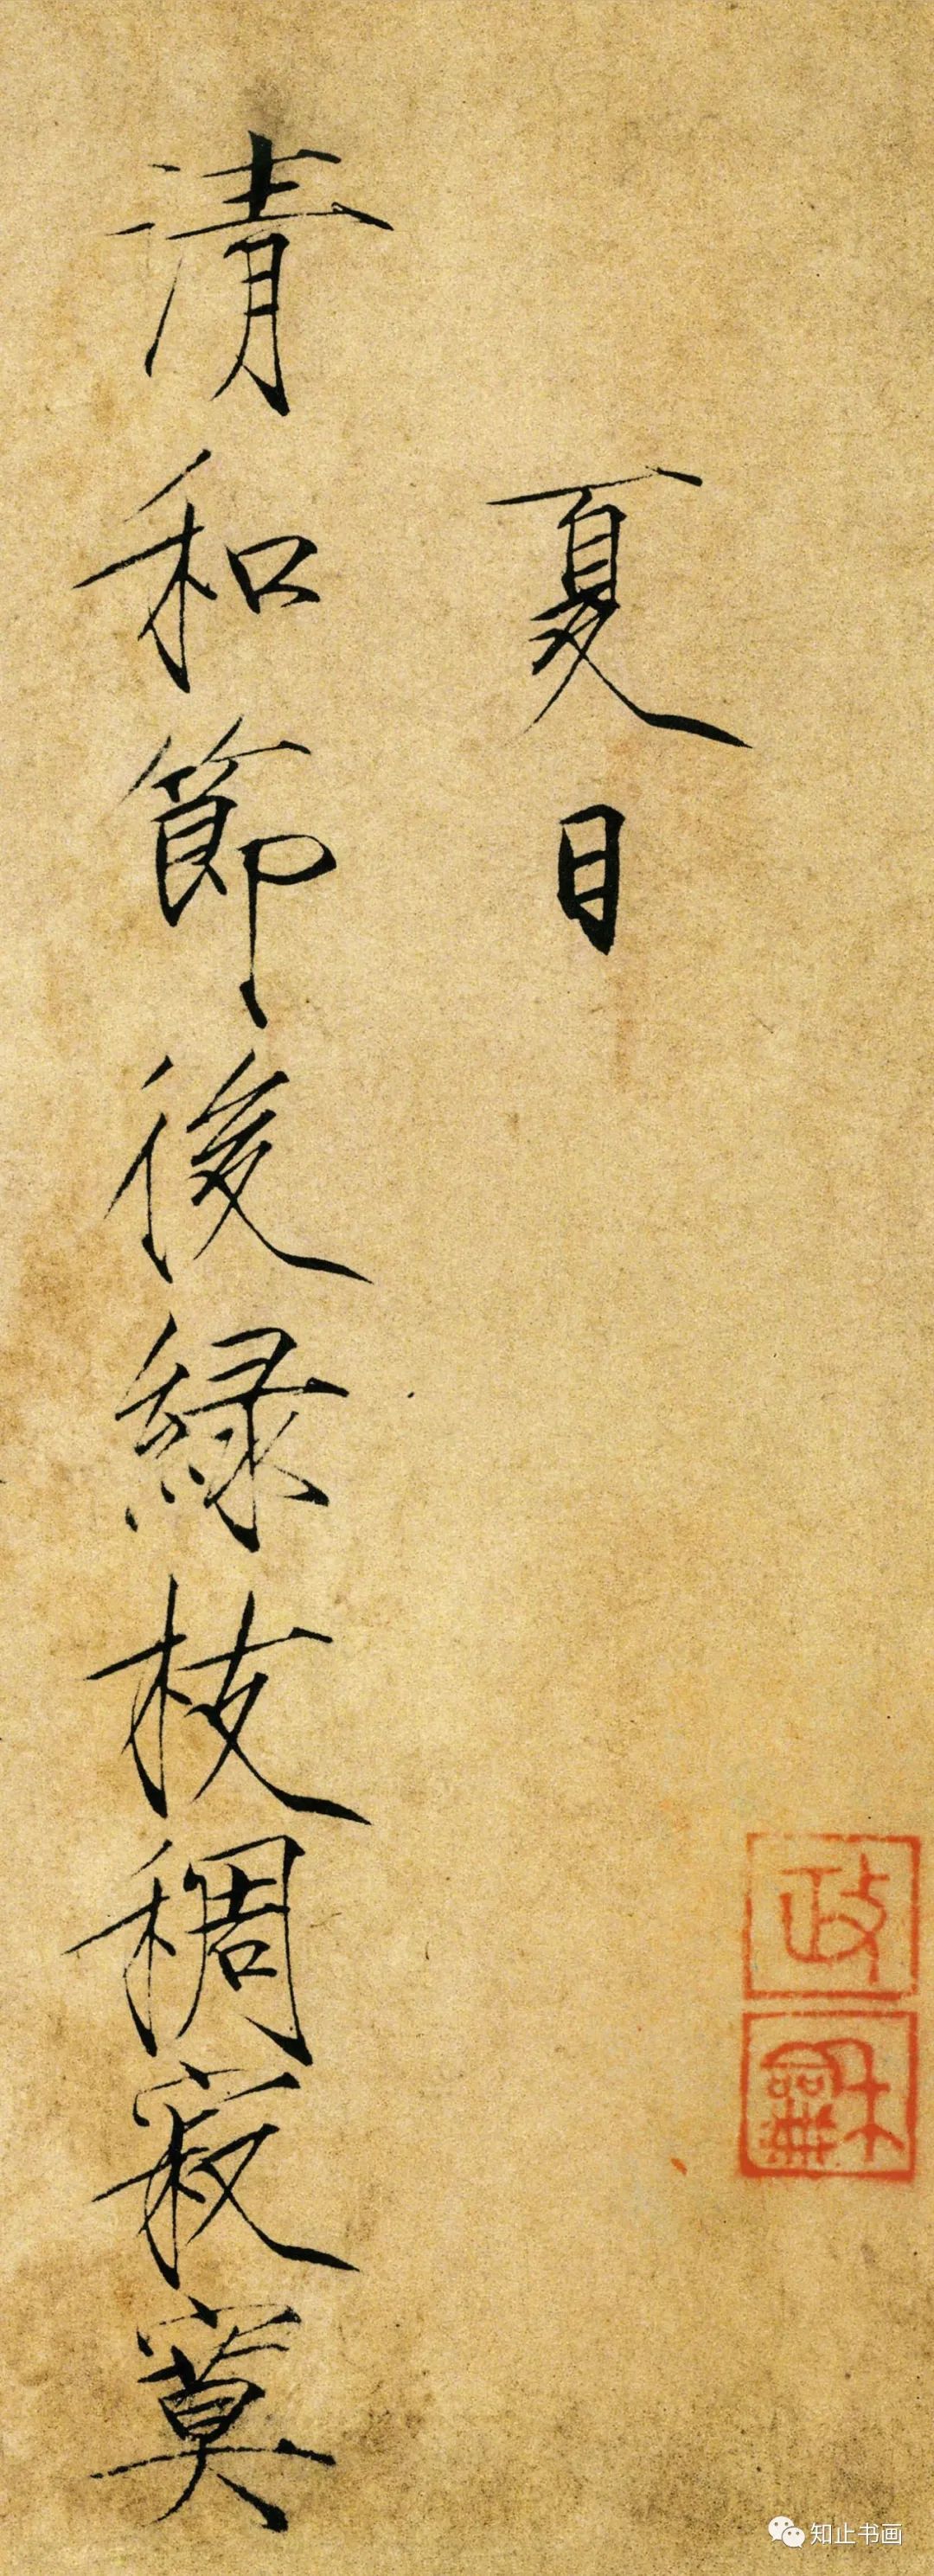 夏日
清和節後綠枝稠寂寞
政
龢
知止书画